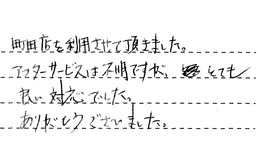 町田店を利用させて頂きました。
アフターサービスは不明ですが、とても
良い対応でした。
ありがとうございました。